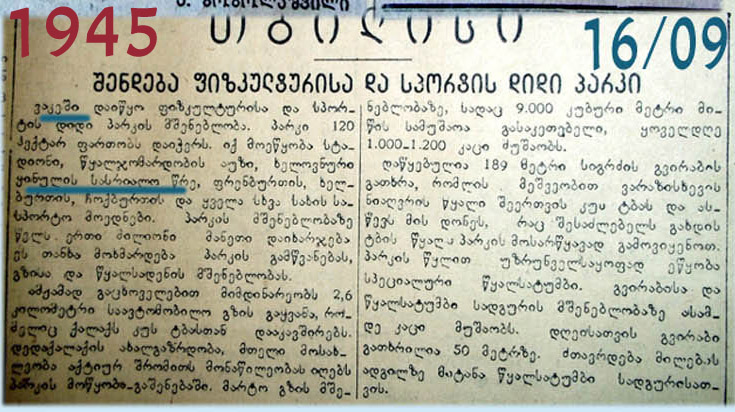 1945
16/09
თბილისი
შენდება ფიზკულტურისა და სპორტის დიდი პარკი
ვაკეში დაიწყო ფიზკულტურისა და სპორ-
ტის დიდი პარკის მშენებლობა. პარკი 120
ჰექტარ ფართობს დაიჭერს. იქ მოეწყობა სტა-
დიონი, წყალჯომარდობის აუზი, ხელოვნური
ყინულის სასრიალო წრე, ფრენბურთის, ხელ-
ბურთის, ჩოგბურთის და ყველა სხვა სახის სა-
სპორტო მოედნები. პარკის მშენებლობაზე
წელს ერთი მილიონი მანეთი დაიხარჯება
ეს თანხა მოხმარდება პარკის გამწვანებას,
გზისა და წყალსადენის მშენებლობას.
ამჟამად გაცხოველებით მიმდინარეობს 2,6
კილომეტრი საავტომობილო გზის გაყვანა, რო-
მელიც ქალაქს კუს ტბასთან დააკავშირებს.
დედაქალაქის ახალგაზრდობა, მთელი მოსახ-
ლეობა აქტიურ შრომითს მონაწილეობას იღებს
პარკის მოწყობა-გაშენებაში. მარტო გზის მშე-
ნებლობაზე, სადაც 9.000 კუბური მეტრი მი-
წის სამუშაოა გასაკეთებელი, ყოველდღე
1.000-1.200 კაცი მუშაობს.
დაწყებულია 189 მეტრი სიგრძის გვირაბის
გათხრა, რომლის მეშვეობით ვარაზისხევის
ნიაღვრის წყალი შეერთვის კუს ტბას და ას-
წევს მის დონეს, რაც შესაძლებელს გახდის
ტბის წყალი პარკის მოსარწყავად გამოვიყენოთ.
პარკის წყლით უზრუნველსაყოფად ეწყობა
სპეციალური წყალსატუმბი. გვირაბისა და
წყალსატუმბი სადგურის მშენებლობაზე ასამ-
დე კაცი მუშაობს. დღეისათვის გვირაბი
გათხრილია 50 მეტრზე. მთავრდება მილების
ადგილზე მიტანა წყალსატუმბი სადგურისათ-
ვის.